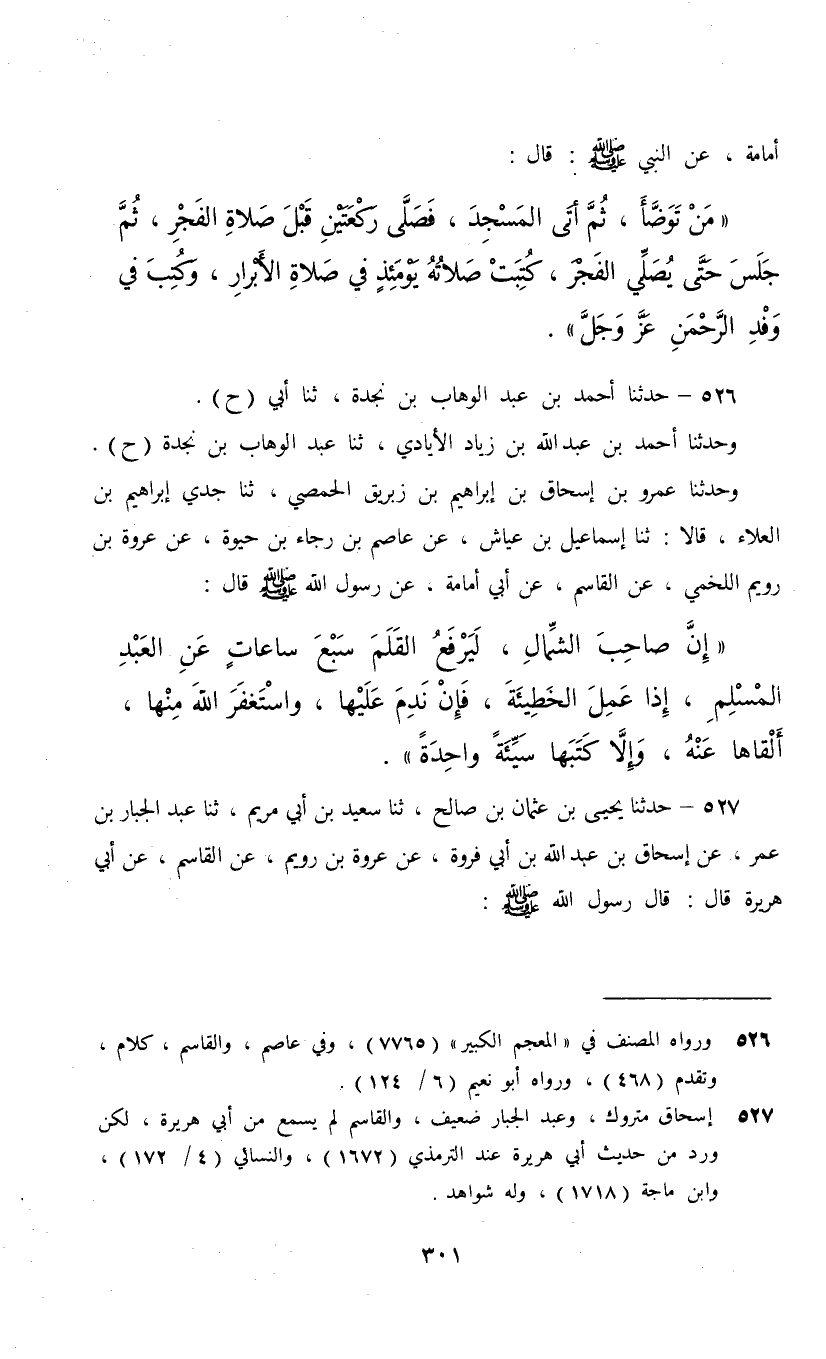 أمامة ، عن النبي ﷺ : قال :
« مَنْ تَوَضَّأَ ، ثُمَّ أَتَى المَسْجِدَ ، فَصَلَّى رَكْعَتَيْنِ قَبْلَ صَلاةِ الفَجْرِ ، ثُمَّ
جَلَسَ حَتَّى يُصَلِّي الفَجْرَ ، كُتِبَتْ صَلاتُهُ يَوْمَئِذٍ في صَلاةِ الأَبْرارِ ، وَكُتِبَ في
وَفْدِ الرَّحْمَنِ عَزَّ وَجَلَّ » .
٥٢٦ – حدثنا أحمد بن عبد الوهاب بن نجدة ، ثنا أبي (ح) .
وحدثنا أحمد بن عبد الله بن زياد الأيادي ، ثنا عبد الوهاب بن نجدة (ح) .
وحدثنا عمرو بن إسحاق بن إبراهيم بن زبريق الحمصي ، ثنا جدي إبراهيم بن
العلاء ، قالا : ثنا إسماعيل بن عياش ، عن عاصم بن رجاء بن حيوة ، عن عروة بن
رويم اللخمي ، عن القاسم ، عن أبي أمامة . عن رسول الله ﷺ قال :
« إِنَّ صاحِبَ الشِّمالِ ، لَيَرْفَعُ القَلَمَ سَبْعَ ساعاتٍ عَنِ العَبْدِ
المُسْلِمِ ، إِذا عَمِلَ الخَطِيئَةَ ، فَإِنْ نَدِمَ عَلَيْها ، واسْتَغفَرَ اللهَ مِنْها ،
أَلْقاها عَنْهُ ، وَإِلَّا كَتَبَها سَيِّئَةً واحِدَةً » .
٥٢٧ – حدثنا يحيى بن عثمان بن صالح ، ثنا سعيد بن أبي مريم ، ثنا عبد الجبار بن
عمر ، عن إسحاق بن عبد الله بن أبي فروة ، عن عروة بن رويم ، عن القاسم ، عن أبي
هريرة قال : قال رسول الله ﷺ :
٥٢٦ ورواه المصنف في « المعجم الكبير » (٧٧٦٥) ، وفي عاصم ، والقاسم ، كلام ،
وتقدم (٤٦٨) ، ورواه أبو نعيم (٦/ ١٢٤) .
٥٢٧ إسحاق متروك ، وعبد الجبار ضعيف ، والقاسم لم يسمع من أبي هريرة ، لكن
ورد من حديث أبي هريرة عند الترمذي (١٦٧٢) ، والنسائي (٤/ ١٧٢) ،
وابن ماجة (١٧١٨) ، وله شواهد .
٣٠١